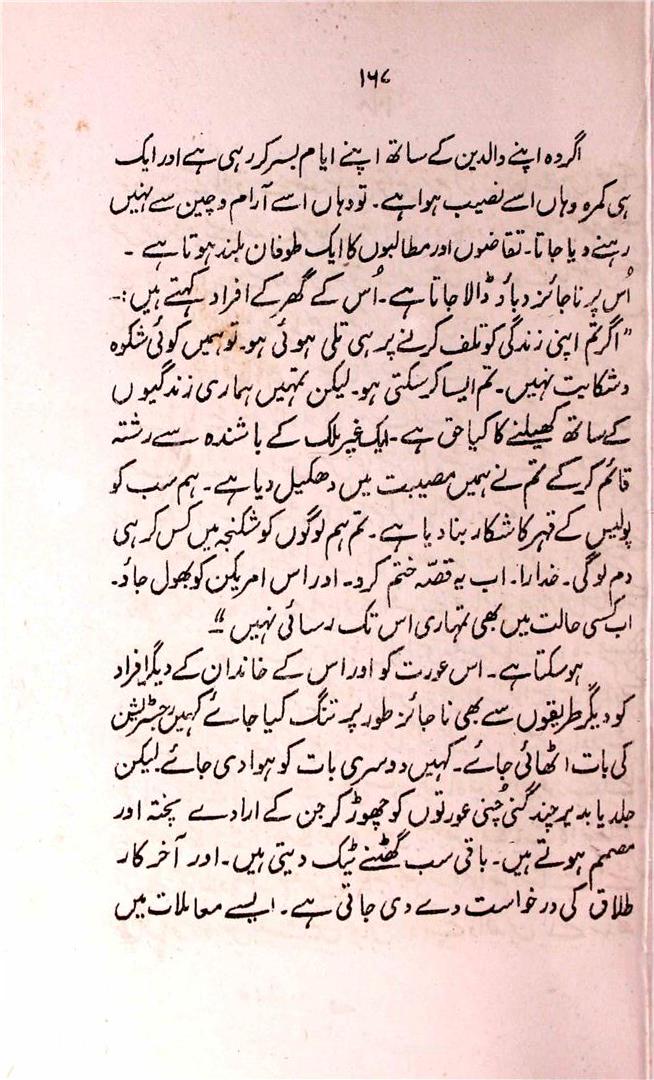 ۱۶۷
اگر وہ اپنے والدین کے ساتھ اپنے ایام بسر کر رہی ہے اور ایک
ہی کمرہ وہاں اسے نصیب ہوا ہے۔ تو وہاں اسے آرام و چین سے نہیں
رہنے دیا جاتا۔ تقاضوں اور مطالبوں کا ایک طوفان بلند ہوتا ہے ۔
اُس پر ناجائز دباؤ ڈالا جاتا ہے۔ اُس کے گھر کے افراد کہتے ہیں :۔
" اگر تم اپنی زندگی کو تلف کرنے پر ہی تلی ہوئی ہو۔ تو ہمیں کوئی شکوہ
و شکایت نہیں۔ تم ایسا کر سکتی ہو۔ لیکن تمہیں ہماری زندگیوں
کے ساتھ کھیلنے کا کیا حق ہے۔ ایک غیر ملک کے باشندہ سے رشتہ
قائم کر کے تم نے ہمیں مصیبت میں دھکیل دیا ہے۔ ہم سب کو
پولیس کے قہر کا شکار بنا دیا ہے۔ تم ہم لوگوں کو شکنجہ میں کس کر ہی
دم لو گی۔ خدارا۔ اب یہ قصّہ ختم کرو۔ اور اس امریکن کو بھول جاؤ۔
اب کسی حالت میں بھی تمہاری اس تک رسائی نہیں "
ہو سکتا ہے۔ اس عورت کو اور اس کے خاندان کے دیگر افراد
کو دیگر طریقوں سے بھی ناجائز طور پر تنگ کیا جائے کہیں رجسٹریشن
کی بات اٹھائی جائے۔ کہیں دوسری بات کو ہوا دی جائے۔ لیکن
جلد یا بدیر چند گنی چُنی عورتوں کو چھوڑ کر جن کے ارادے پختہ اور
مصمم ہوتے ہیں۔ باقی سب گھٹنے ٹیک دیتی ہیں۔ اور آخر کار
طلاق کی درخواست دے دی جاتی ہے۔ ایسے معاملات میں